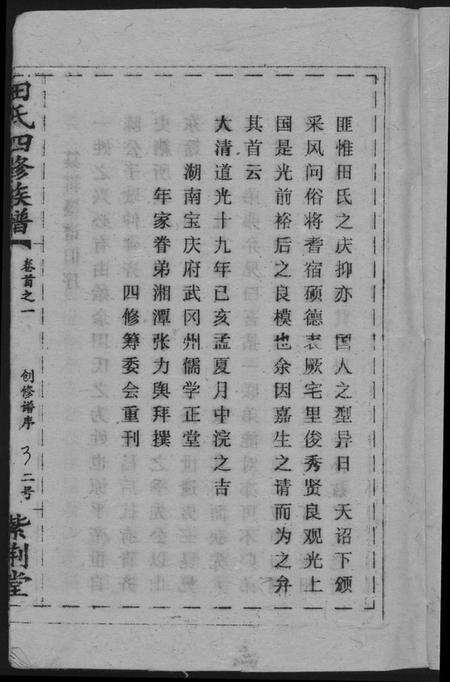 匪惟田氏之庆抑亦 国人之型异日 天诏下颁
采风问俗将耆宿硕德表厥宅里俊秀贤良观光上
国是光前裕后之良模也余因嘉生之请而为之弁
其首云
大清道光十九年己亥孟夏月中浣之吉
湖南宝庆府武冈州儒学正堂
年家眷弟湘潭张力舆拜撰
四修筹委会重刊
田氏四修族谱
卷首之一
创修谱序
3
二号
紫荆堂